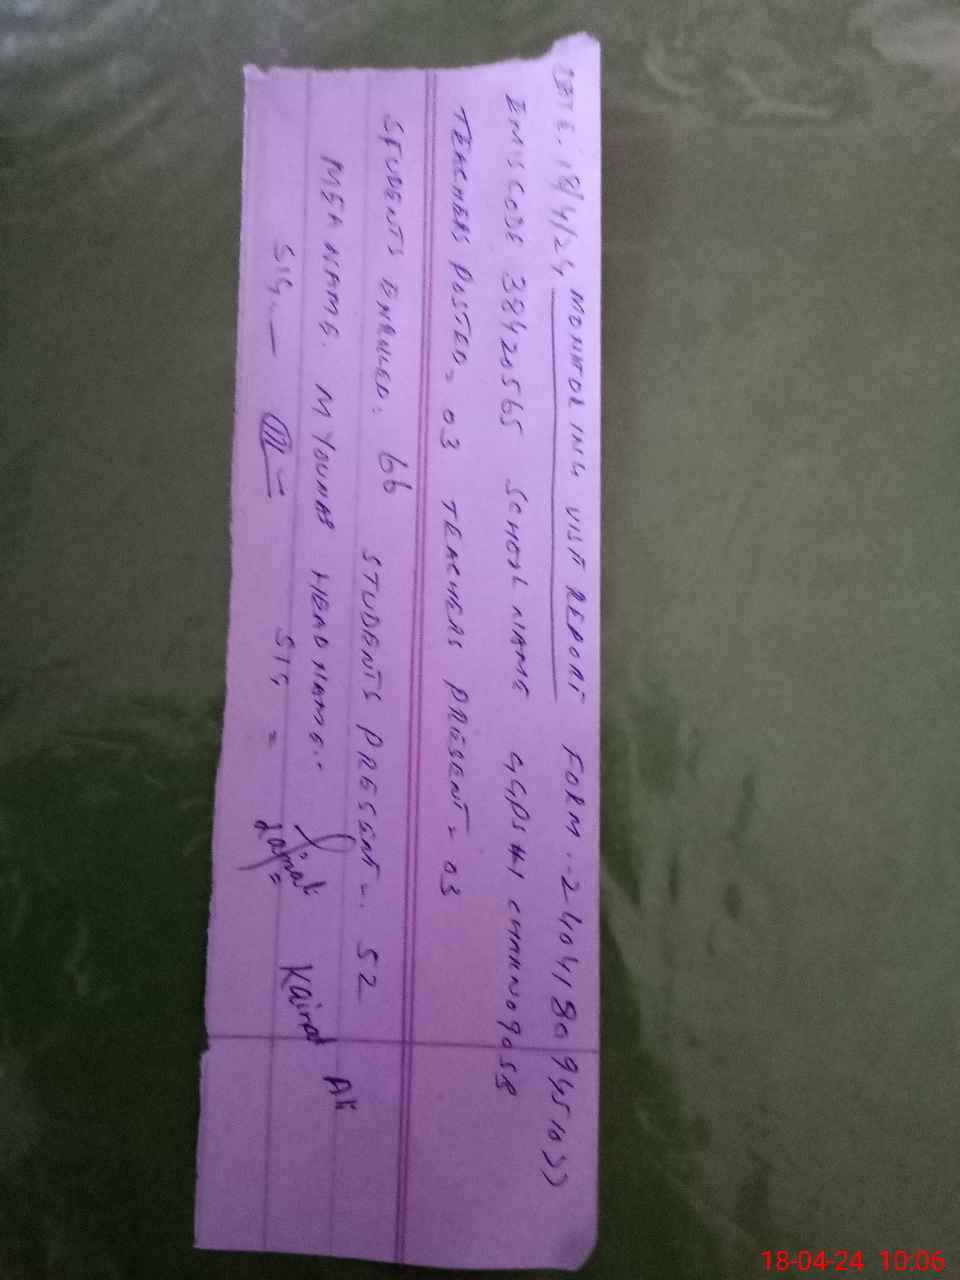 DATE: 18/4/24 MONITORING VISIT REPORT FORM..-240418094510))
EMIS CODE 38420565 SCHOOL NAME GGPS #1 CHAK NO 90 5B
TEACHERS POSTED= 03 TEACHERS PRESENT= 03
STUDENTS ENROLLED: 66 STUDENTS PRESENT-: 52
MEA NAME. M YOUNAS HEAD NAME:. Kainat Ali
SIG.— SIG =
18-04-24 10:06